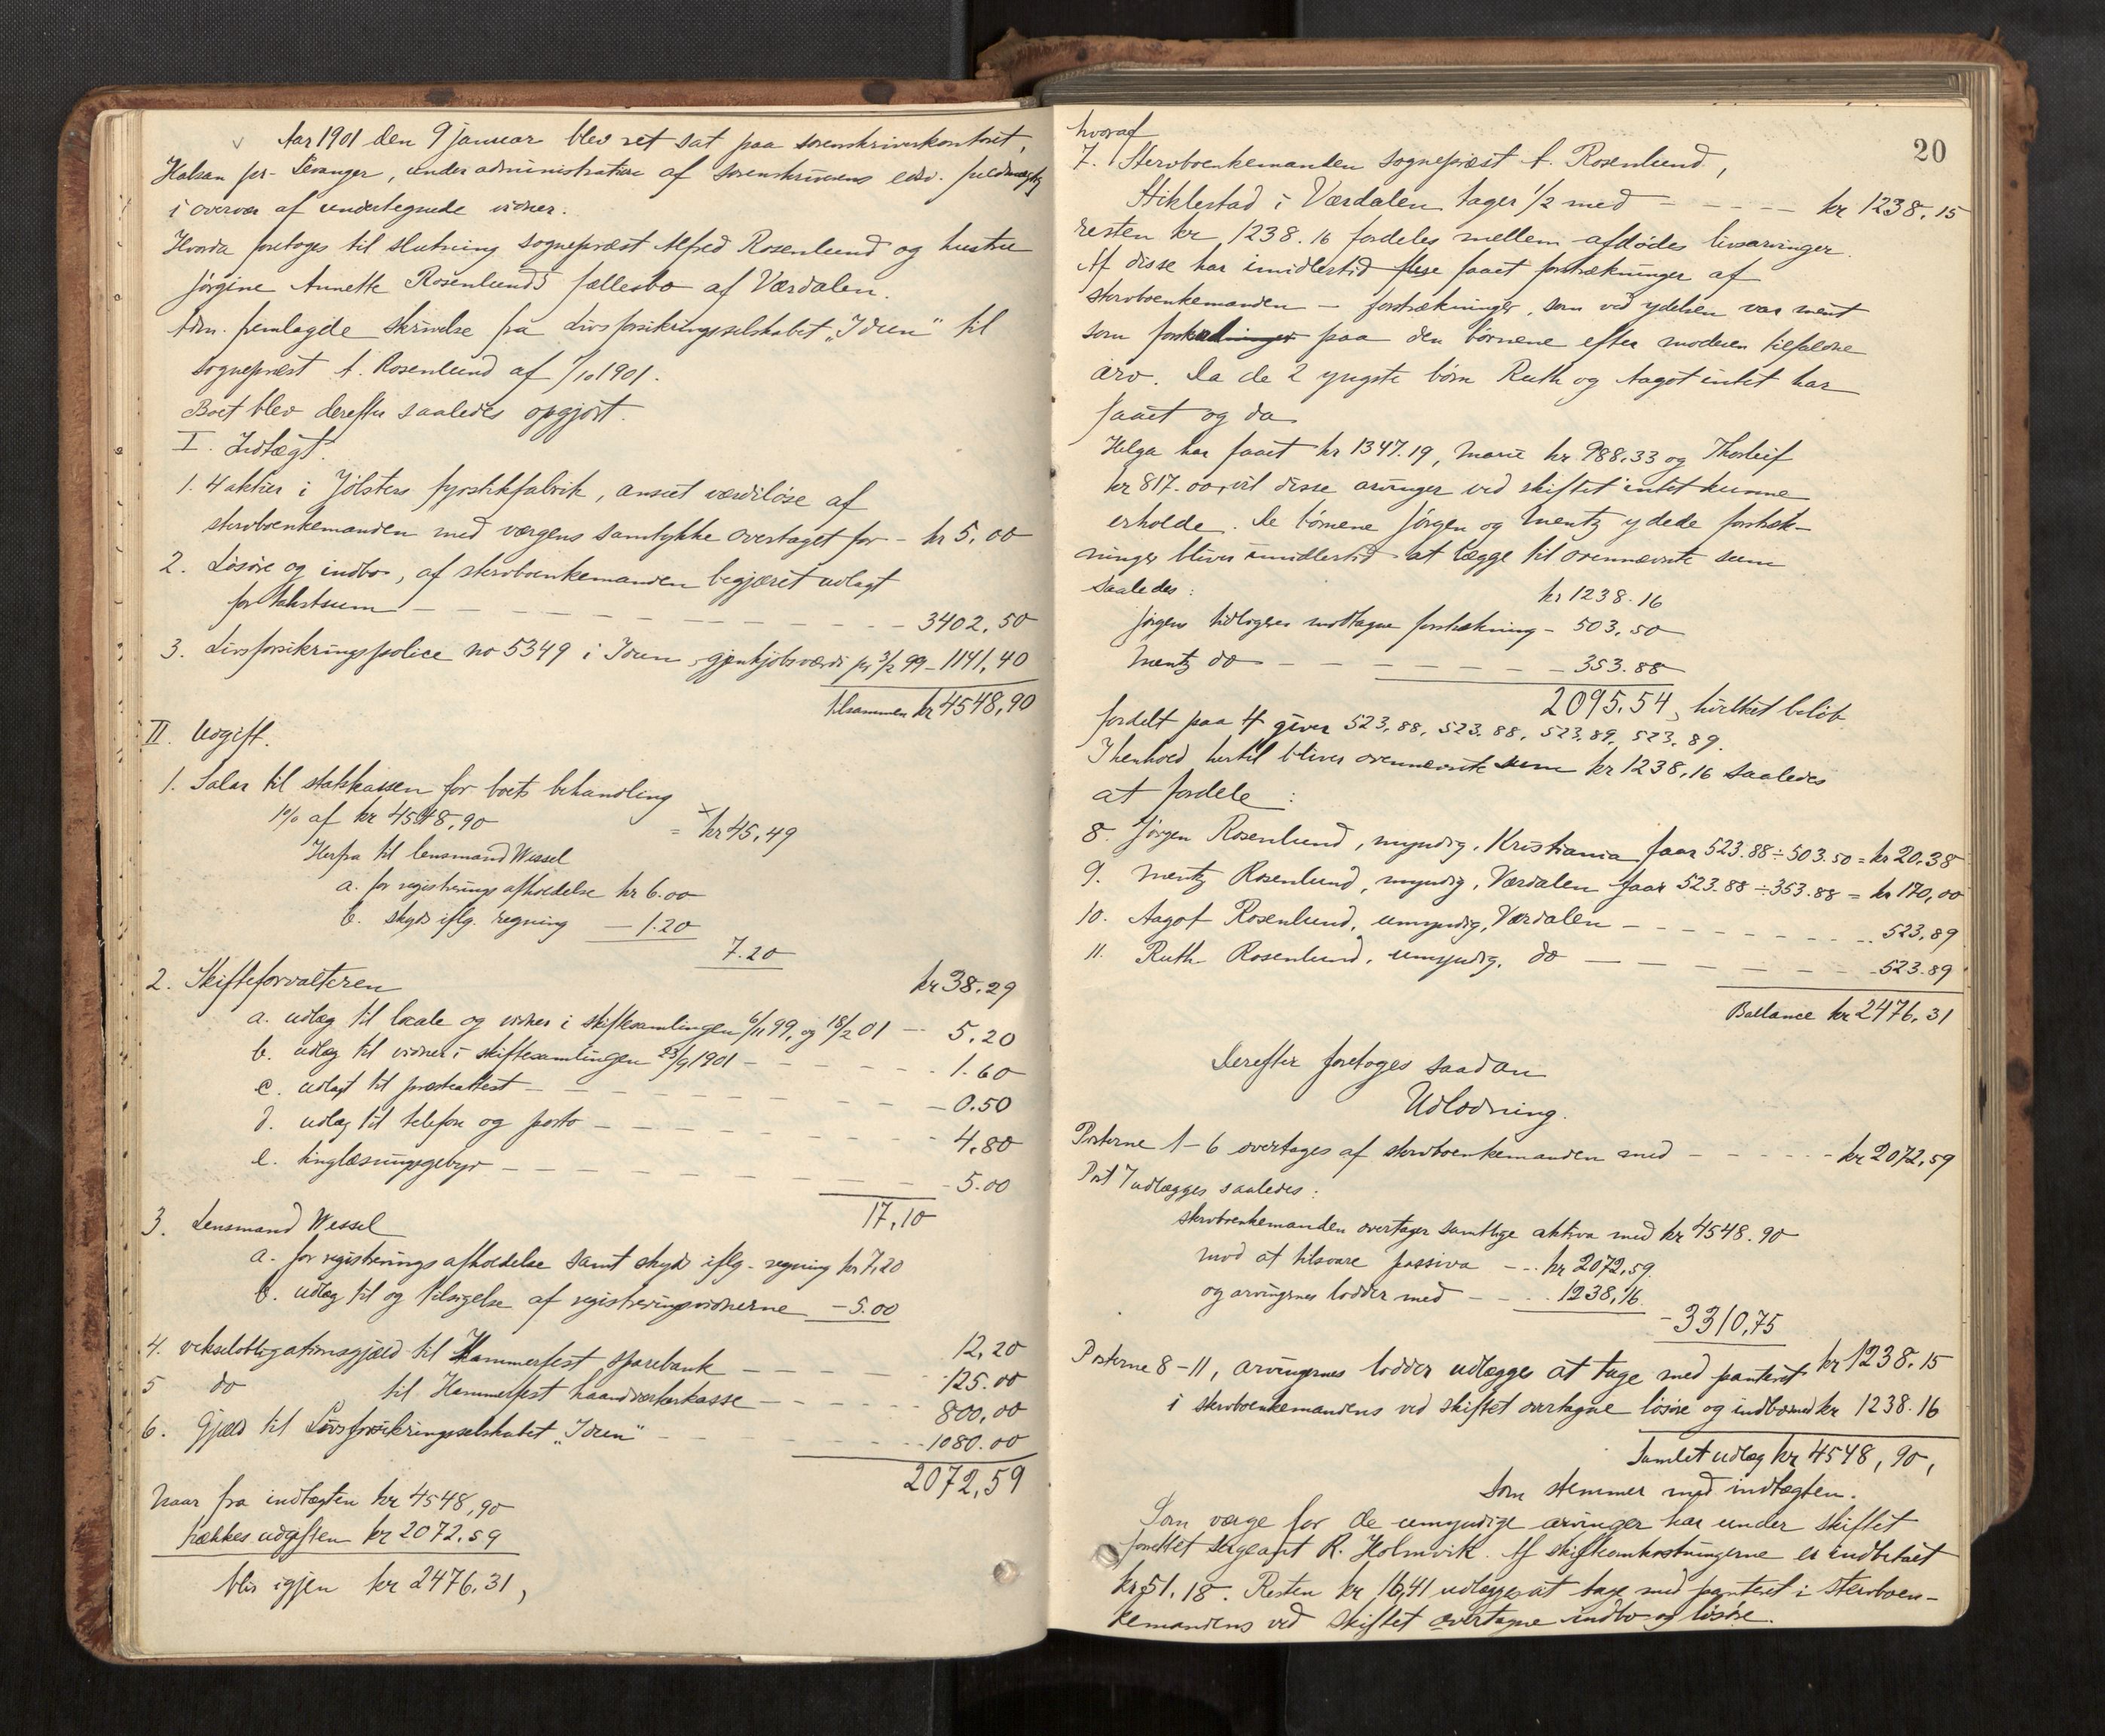 Aar 1901 den 9 januar blev ret sat paa sorenskriverkontoret,
Halsan pr. Levanger, under administration af sorenskriverens edsv. fuldmægtig
i overvær af undertegnede vidner.
Hvorda foretoges til slutning sogneprest Alfred Rosenlund og hustru
Jörgine Annette Rosenlunds fællesbo af Værdalen.
Adm. fremlagde skrivelse fra Livsforsikringsselskabet "Idun" til
sogneprest A. Rosenlund af 1/10 1901.
Boet blev derefter saaledes opgjort.
I. Indtægt.
1. 4 aktier i Jölsters fyrstikfabrik, anseet værdilöse af
stervboenkemanden med værgens samtykke overtaget for - kr 5,00
2. Lösöre og indbo, af stervboenkemanden begjæret udlagt
for takstsum - - - - 3402,50
3. Livsforsikringspolice no 5349 i Idun, gjenkjöbsværdi pr 3/2 99 - 1141,40
tilsammen kr 4548,90
II. Udgift.
1. Salær til statskassen for boets behandling
1% af kr 4548,90 = kr 45,49
Herfra til lensmand Wessel
a. for registrerings afholdelse kr 6.00
b. skyds iflg. regning - 1.20
7.20
kr 38.29
2. Skifteforvalteren
a. udlæg til locale og vidner i skiftesamlingen 6/11 99, og 18/2 01 - 5,20
b. udlæg til vidner i skiftesamlingen 23/9 1901 - - 1.60
c. udlagt til presteattest - - - 0.50
d. udlæg til telefon og porto - - - 4,80
e. tinglæsningsgebyr - - - 5.00
17,10
3. Lensmand Wessel
a. for registrerings afholdelse samt skyds iflg. regning kr 7,20
b. udlæg til og tilsigelse af registreringsvidnerne - 5.00
12,20
4. vekselobligationsgjæld til Hammerfest sparebank - - - 125.00
5 do til Hammerfest haandværkerkasse - - - 800,00
6. Gjæld til Livsforsikringsselskabet "Idun" - - - 1080.00
2072,59
Naar fra indtægten kr 4548,90
trækkes udgiften kr 2072.59
blir igjen kr 2476.31,
20
hvoraf
7. Stervboenkemanden sogneprest A. Rosenlund,
Stiklestad i Værdalen tager 1/2 med - - - - kr 1238.15
resten kr 1238.16 fordeles mellem afdödes livsarvinger.
Af disse har imidlertid flere faaet forstrækninger af
stervboenkemanden - forstrækninger, som ved ydelsen var ment
som forskudinger paa den börnene efter moderen tilfaldne
arv. Da de 2 yngste börn Ruth og Aagot intet har
faaet og da
Helga har faaet kr 1347.19, Marie kr. 988.33 og Thorleif
kr 817.00, vil disse arvinger ved skiftet intet kunne
erholde. De börnene Jörgen og Mentz ydede forstræk-
ninger bliver imidlertid at lægge til ovennævnte sum
saaledes: kr 1238.16
Jörgens tidligere modtagne forstrækning - 503,50
Mentz do - - - - - 353.88
2095.54, hvilket belöb
fordelt paa 4 giver 523.88, 523.88, 523,89, 523,89.
I henhold hertil bliver ovennævnte sum kr 1238,16 saaledes
at fordele:
8. Jörgen Rosenlund, myndig, Kristiania faar 523.88 ÷ 503.50 = kr 20.38
9. Mentz Rosenlund, myndig, Værdalen faar 523.88 ÷ 353.88 = kr 170,00
10. Aagot Rosenlund, umyndig, Værdalen - - - - 523,89
11. Ruth Rosenlund, umyndig, do - - - - 523.89
Ballance kr 2476,31
Derefter foretoges saadan
Udlodning.
Posterne 1-6 overtages af stervboenkemanden med - - - - kr 2072,59
Post 7 udlægges saaledes:
stervboenkemanden overtager samtlige aktiva med kr 4548.90
mod at tilsvare passiva - - kr 2072,59
og arvingernes lodder med - - 1238,16
- 3310,75
kr 1238.15
Posterne 8-11, arvingernes lodder udlægges at tage med panteret
i stervboenkemandens ved skiftet overtagne lösöre og indbo med kr 1238.16
Samlet udlæg kr 4548,90,
som stemmer med indtægten.
Som værge for de umyndige arvinger har under skiftet
fungeret sergeant R. Holmvik. Af skifteomkostningerne er indbetalt
kr 51.18. Resten kr 16,41 udlægges at tage med panteret i stervboen-
kemandens ved skiftet overtagne indbo og lösöre.